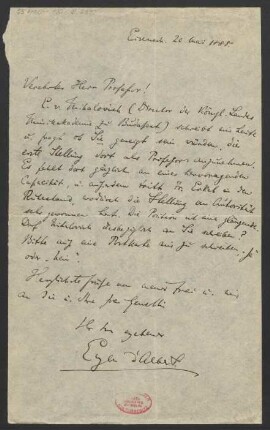 Eisenach. 20 Mai 1888
Verehrter Herr Professor!
E. v. Mihalovich (Director der Königl. Landes
Musikakademie zu Budapest) schreibt mir heute
u. fragt ob Sie geneigt sein würden, die
erste Stellung dort als Professor anzunehmen.
Es fehlt dort gänzlich an einer hervorragenden
Capacität, u. außerdem tritt Erkel in den
Ruhestand, wodurch die Stellung an Autorität
sehr gewonnen hat. Die Position ist eine glänzende.
Darf Mihalovich desbezüglich an Sie schreiben?
Bitte auf eine Postkarte nur zu schreiben, "ja"
oder "nein".
Herzlichste Grüße von meiner Frau u. mir
an Sie u. Ihre Frau Gemahlin
Ihr Ihnen ergebener
Eugen d'Albert